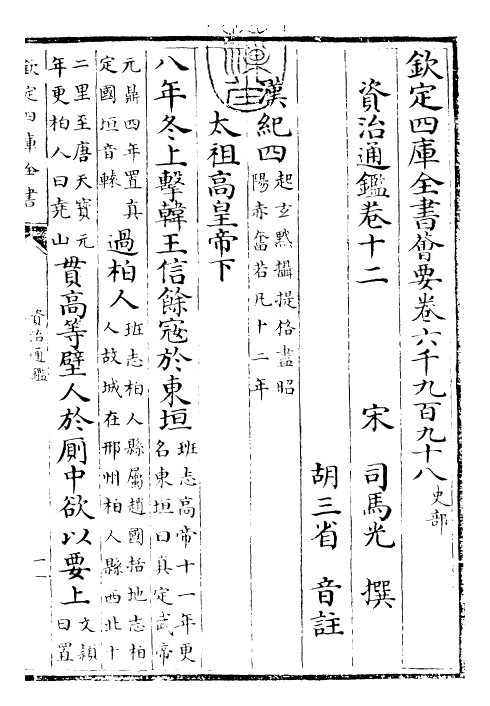 欽定四庫全書薈要卷六千九百九十八史部
資治通鑑卷十二
宋 司馬光 撰
胡三省 音註
漢紀四起玄黓攝提格盡昭陽赤奮若凡十二年
太祖高皇帝下
八年冬上擊韓王信餘寇於東垣班志高帝十一年更名東垣曰真定武帝
元鼎四年置真定國垣音轅過柏人班志柏人縣屬趙國括地志柏人故城在邢州柏人縣西北十
二里至唐天寶元年更柏人曰堯山貫高等壁人於厠中欲以要上文穎曰置
欽定四庫全書
資治通鑑
一